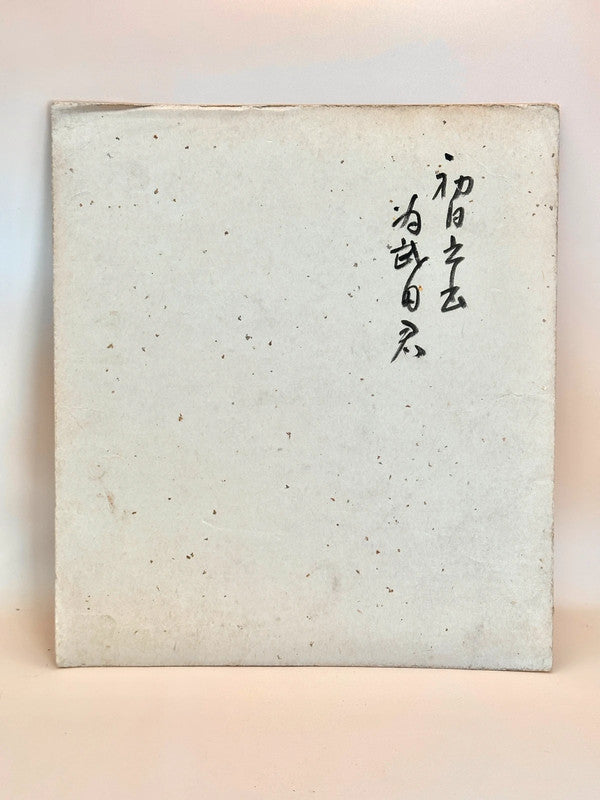 初日之出
為武田君